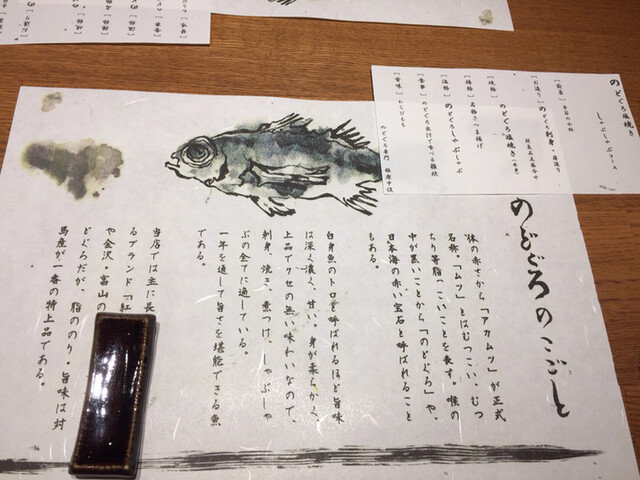 のどぐろのこごと
体の赤さから「アカムツ」が正式
名称。「ムツ」とはむつこい、むつ
ちり等脂っこいことを表す。喉の
中が黒いことから「のどぐろ」や、
日本海の赤い宝石と呼ばれること
もある。
白身魚のトロと呼ばれるほど旨味
は深く濃く、甘い。身が柔らかく、
上品でクセの無い味わいなので、
刺身、焼き、煮つけ、しゃぶしゃ
ぶの全てに適している。
一年を通して旨さを堪能できる魚
である。
当店では主に長
るブランド「紅
や金沢・富山の
どぐろだが、脂ののり・旨味は対
馬産が一番の特上品である。
のどぐろ塩焼き
しゃぶしゃぶコース
【お造り】のどぐろ刺身・
【焼物】のどぐろ塩焼き
【揚物】名物さつま揚げ
【温物】のどぐろしゃぶしゃぶ
【食事】のどぐろ出汁で食べる雑炊
【甘味】わらびもち
のどぐろ専門 銀座中俣